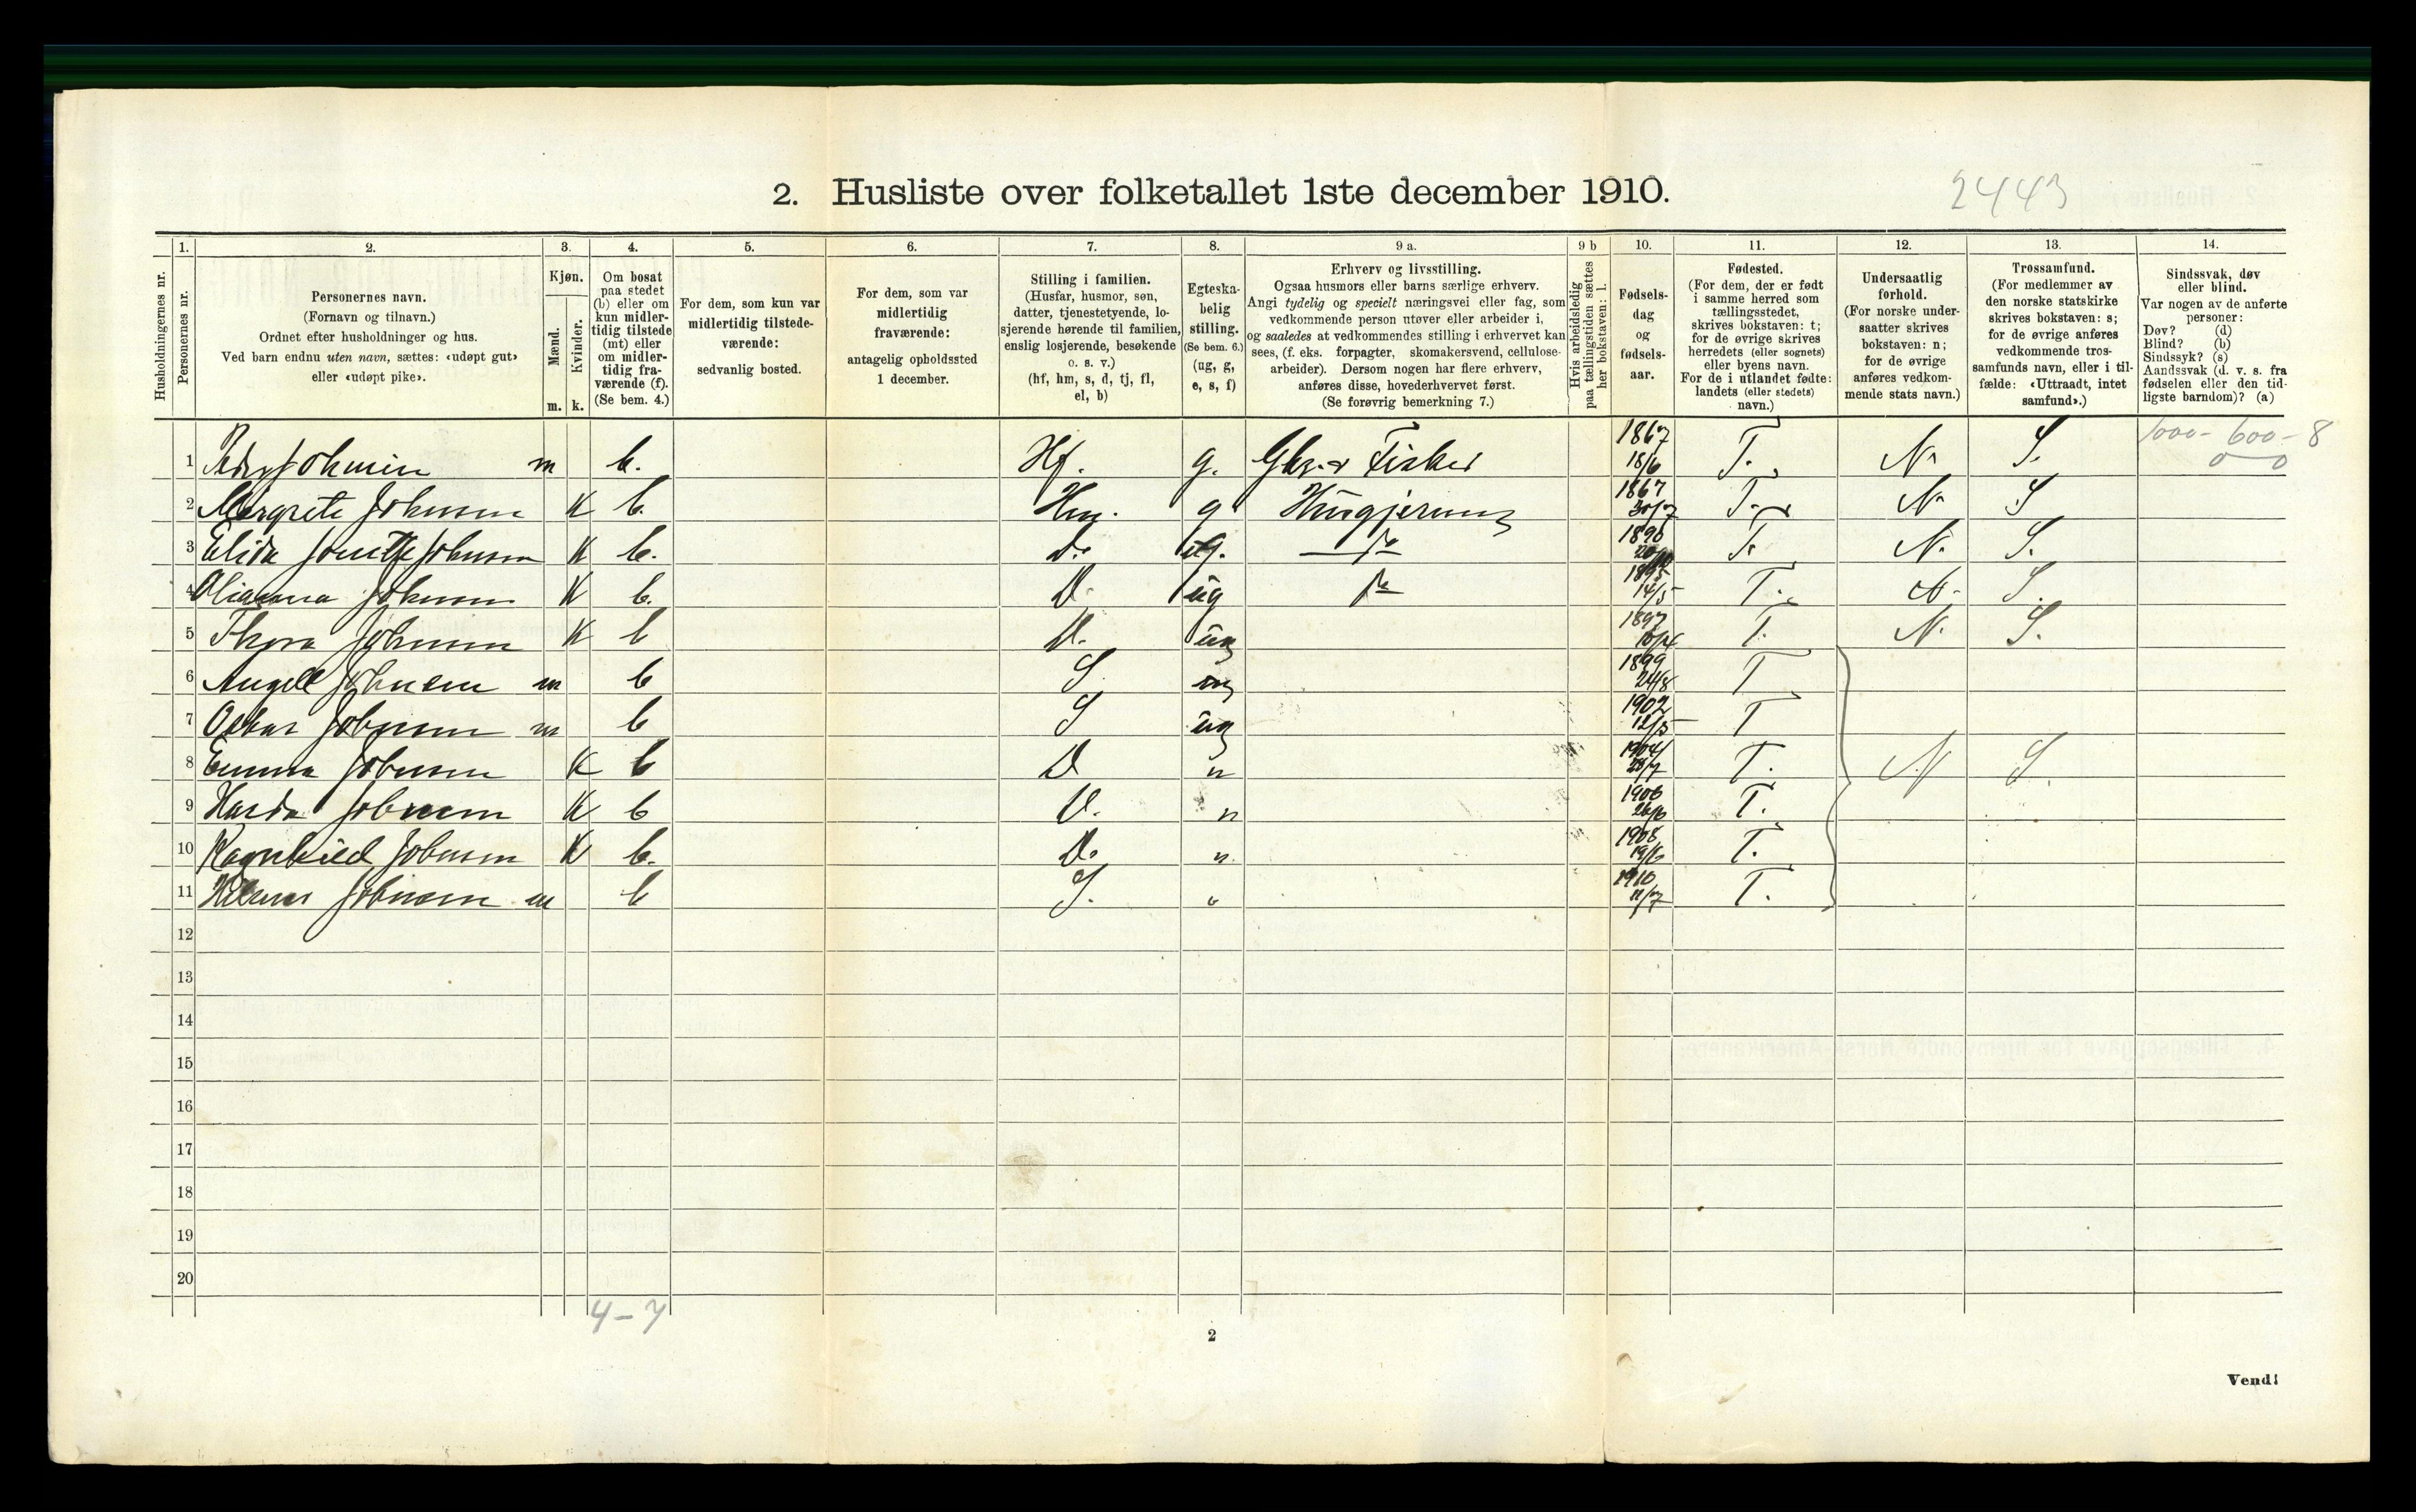 2. Husliste over folketallet 1ste december 1910.
2443
Husholdningernes nr.
1.
Personernes nr.
2.
Personernes navn.
(Fornavn og tilnavn.)
Ordnet efter husholdninger og hus.
Ved barn endnu uten navn, sættes: «udøpt gut»
eller «udøpt pike».
3.
Kjøn.
Mænd.
Kvinder.
m. k.
4.
Om bosat
paa stedet
(b) eller om
kun midler-
tidig tilstede
(mt) eller
om midler-
tidig fra-
værende (f).
(Se bem. 4.)
5.
For dem, som kun var
midlertidig tilstede-
værende:
sedvanlig bosted.
6.
For dem, som var
midlertidig
fraværende:
antagelig opholdssted
1 december.
7.
Stilling i familien.
(Husfar, husmor, søn,
datter, tjenestetyende, lo-
sjerende hørende til familien,
enslig losjerende, besøkende
o. s. v.)
(hf, hm, s, d, tj, fl,
el, b)
8.
Egteska-
belig
stilling.
(Se bem. 6.)
(ug, g,
e, s, f)
9 a.
Erhverv og livsstilling.
Ogsaa husmors eller barns særlige erhverv.
Angi tydelig og specielt næringsvei eller fag, som
vedkommende person utøver eller arbeider i,
og saaledes at vedkommendes stilling i erhvervet kan
sees, (f. eks. forpagter, skomakersvend, cellulose-
arbeider). Dersom nogen har flere erhverv,
anføres disse, hovederhvervet først.
(Se forøvrig bemerkning 7.)
9 b
Hvis arbeidsledig
paa tællingstiden sættes
her bokstaven: l.
10.
Fødsels-
dag
og
fødsels-
aar.
11.
Fødested.
(For dem, der er født
i samme herred som
tællingsstedet,
skrives bokstaven: t;
for de øvrige skrives
herredets (eller sognets)
eller byens navn.
For de i utlandet fødte:
landets (eller stedets)
navn.)
12.
Undersaatlig
forhold.
(For norske under-
saatter skrives
bokstaven: n;
for de øvrige
anføres vedkom-
mende stats navn.)
13.
Trossamfund.
(For medlemmer av
den norske statskirke
skrives bokstaven: s;
for de øvrige anføres
vedkommende tros-
samfunds navn, eller i til-
fælde: «Uttraadt, intet
samfund».)
14.
Sindssvak, døv
eller blind.
Var nogen av de anførte
personer:
Døv? (d)
Blind? (b)
Sindssyk? (s)
Aandssvak (d. v. s. fra
fødselen eller den tid-
ligste barndom)? (a)
1000 - 600 - 8
0 0
1 Johnsen m b. Hf. g. Gbr. & Fisker 1867 18/6 T. N. S.
2 Margrete Johnsen K b. Hm. g Husgjerning 1867 30/7 T. N. S
3 Elida Johnsen K b. D. ug. do 1890 T. N. S.
4 Johnsen K b. D. ug do 1895 14/5 T. N. S.
5 Thora Johnsen K b D. ug 1897 10/4 T. N. S.
6 Angell Johnsen m b S ug 1899 24/8 T
7 Oskar Johnsen m b S ug 1902 12/5 T
8 Emma Johnsen K b D " 1904 T. N S.
9 Johnsen K b D. " 1906 26/6 T.
10 Ragnhild Johnsen K b. D. " 1908 19/6 T.
11 Johnsen m b S. " 1910 11/7 T.
12
13
14
15
16
17
18
19
20
4 - 7
2
Vend!